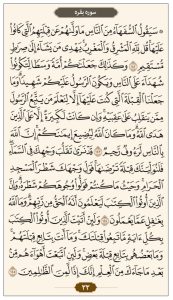 سوره بقره
۞ سَيَقُولُ السُّفَهَاءُ مِنَ النَّاسِ مَا وَلَّىٰهُمْ عَن قِبْلَتِهِمُ الَّتِي كَانُوا
عَلَيْهَا قُل لِّلَّهِ الْمَشْرِقُ وَالْمَغْرِبُ يَهْدِي مَن يَشَاءُ إِلَىٰ صِرَاطٍ
مُّسْتَقِيمٍ ﴿١٤٢﴾ وَكَذَٰلِكَ جَعَلْنَٰكُمْ أُمَّةً وَسَطًا لِّتَكُونُوا
شُهَدَاءَ عَلَى النَّاسِ وَيَكُونَ الرَّسُولُ عَلَيْكُمْ شَهِيدًا وَمَا
جَعَلْنَا الْقِبْلَةَ الَّتِي كُنتَ عَلَيْهَا إِلَّا لِنَعْلَمَ مَن يَتَّبِعُ الرَّسُولَ
مِمَّن يَنقَلِبُ عَلَىٰ عَقِبَيْهِ وَإِن كَانَتْ لَكَبِيرَةً إِلَّا عَلَى الَّذِينَ
هَدَى اللَّهُ وَمَا كَانَ اللَّهُ لِيُضِيعَ إِيمَٰنَكُمْ إِنَّ اللَّهَ
بِالنَّاسِ لَرَءُوفٌ رَّحِيمٌ ﴿١٤٣﴾ قَدْ نَرَىٰ تَقَلُّبَ وَجْهِكَ فِي السَّمَاءِ
فَلَنُوَلِّيَنَّكَ قِبْلَةً تَرْضَىٰهَا فَوَلِّ وَجْهَكَ شَطْرَ الْمَسْجِدِ
الْحَرَامِ وَحَيْثُ مَا كُنتُمْ فَوَلُّوا وُجُوهَكُمْ شَطْرَهُ وَإِنَّ
الَّذِينَ أُوتُوا الْكِتَٰبَ لَيَعْلَمُونَ أَنَّهُ الْحَقُّ مِن رَّبِّهِمْ وَمَا اللَّهُ
بِغَٰفِلٍ عَمَّا يَعْمَلُونَ ﴿١٤٤﴾ وَلَئِنْ أَتَيْتَ الَّذِينَ أُوتُوا الْكِتَٰبَ
بِكُلِّ ءَايَةٍ مَّا تَبِعُوا قِبْلَتَكَ وَمَا أَنتَ بِتَابِعٍ قِبْلَتَهُمْ
وَمَا بَعْضُهُم بِتَابِعٍ قِبْلَةَ بَعْضٍ وَلَئِنِ اتَّبَعْتَ أَهْوَاءَهُم مِّن
بَعْدِ مَا جَاءَكَ مِنَ الْعِلْمِ إِنَّكَ إِذًا لَّمِنَ الظَّٰلِمِينَ ﴿١٤٥﴾
۲۲